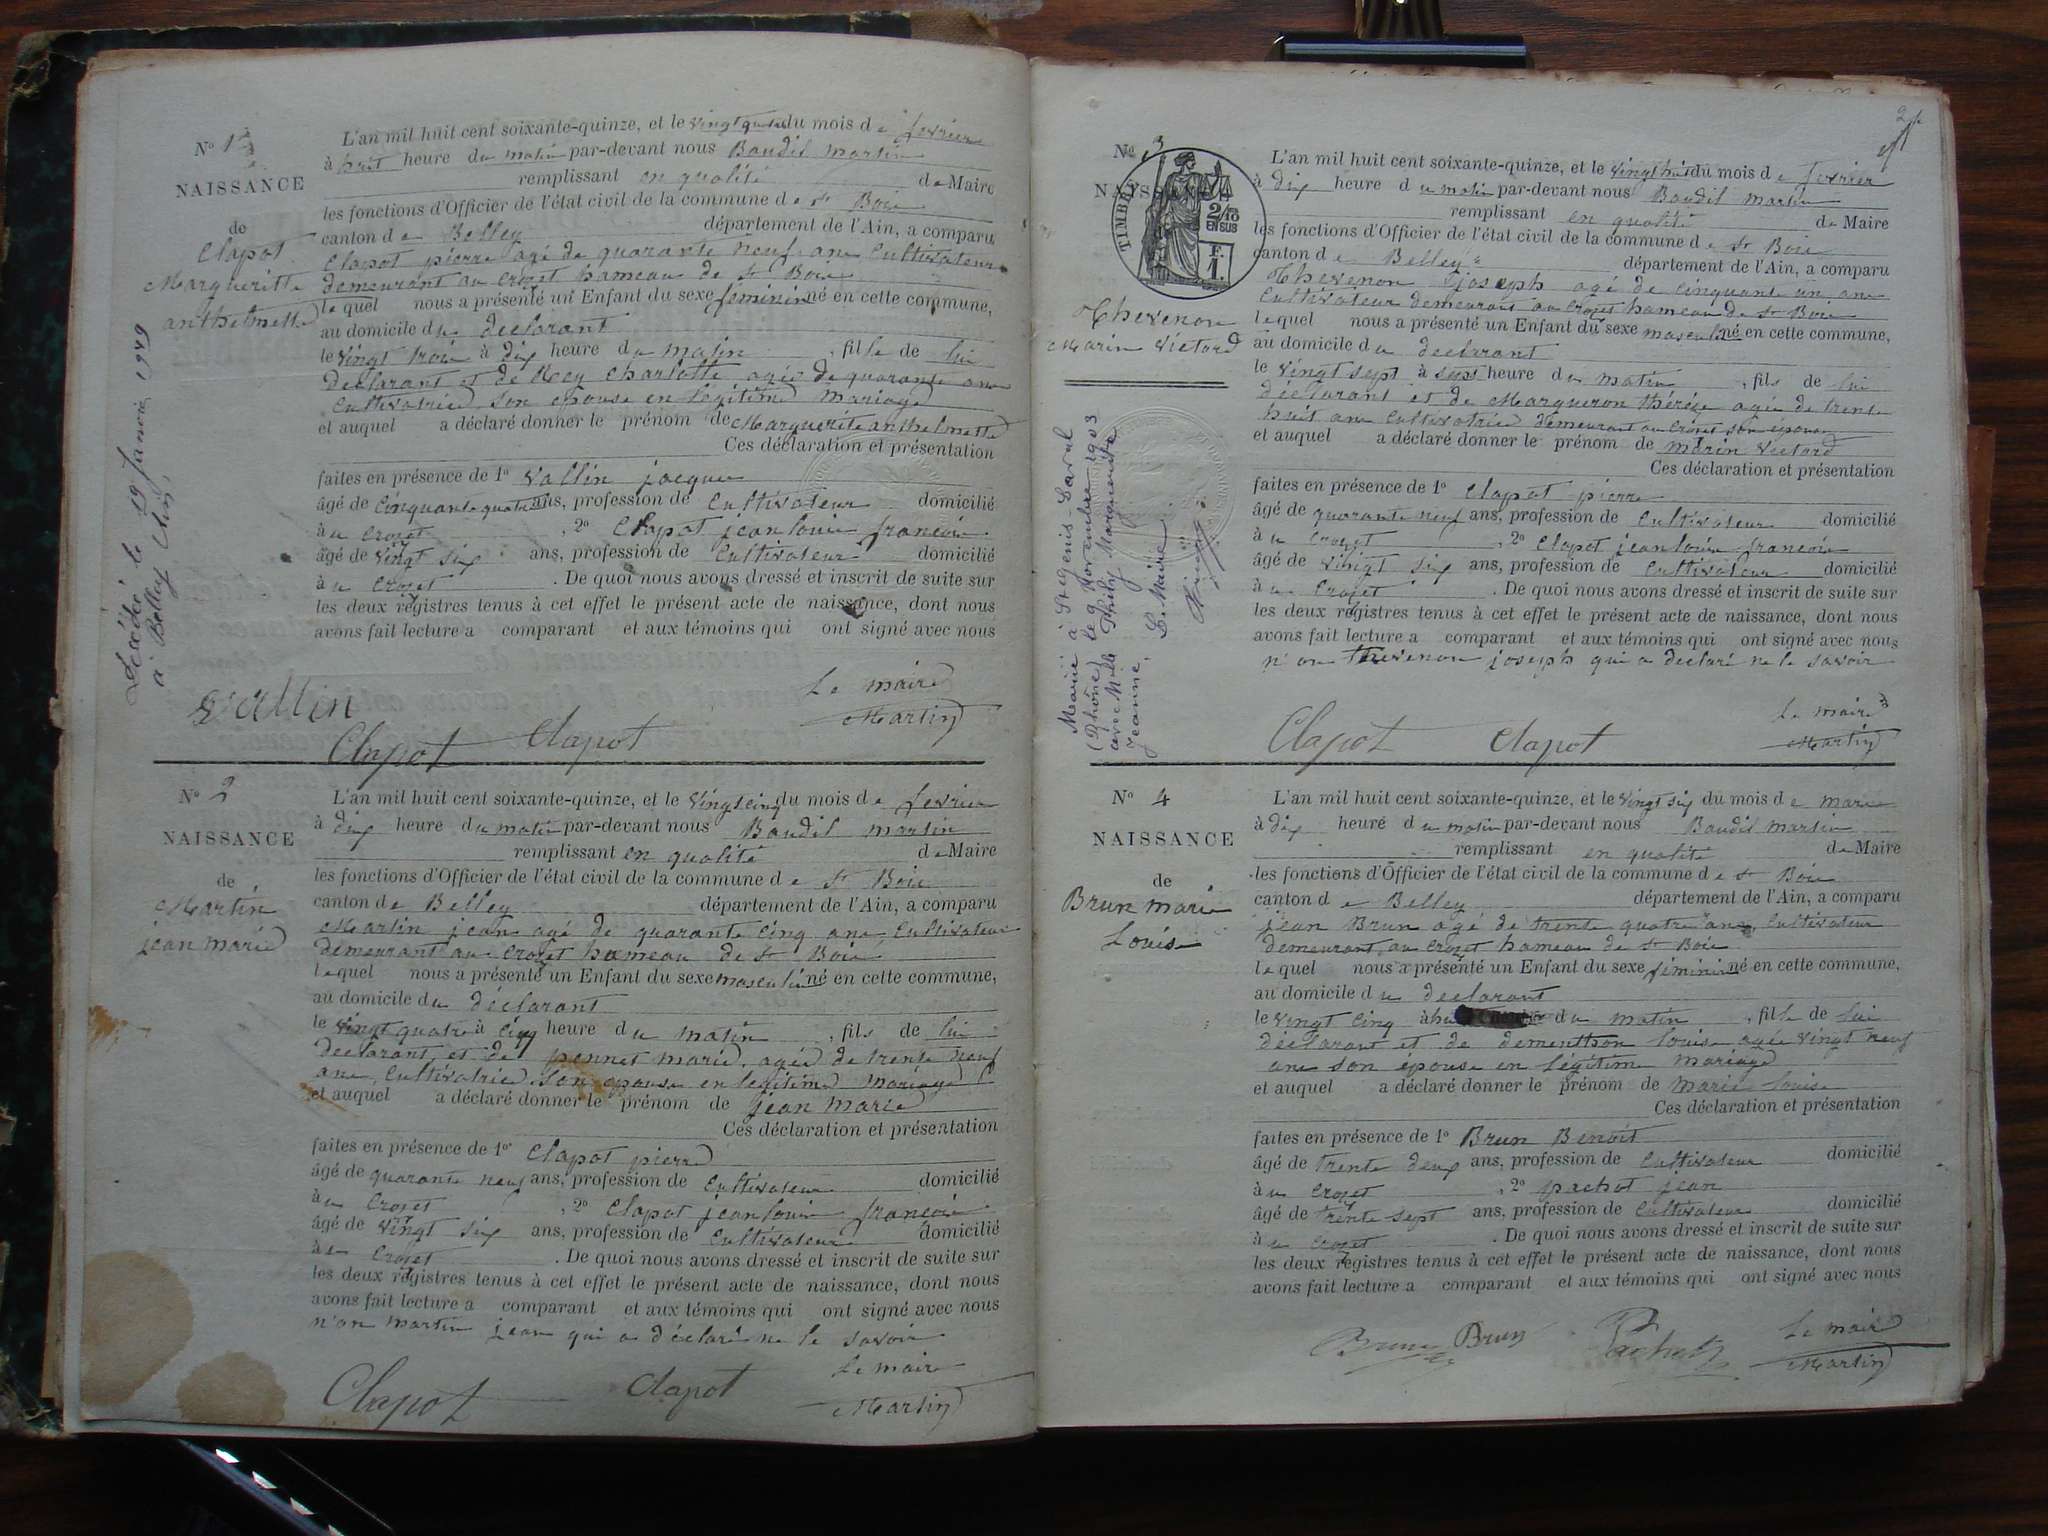 No 1
NAISSANCE
de
Clapot
Margueritte
anthelmette
Décédée le 19 Janvier 1949
à Belley (Ain)
L'an mil huit cent soixante-quinze, et le vingt quatre du mois de fevrier
à huit heure du matin par-devant nous Baudit martin
remplissant en qualité de Maire
les fonctions d'Officier de l'état civil de la commune de St Bois
canton de Belley département de l'Ain, a comparu
Clapot pierre agé de quarante neuf ans Cultivateur
demeurant au crozet hameau de St Bois
lequel nous a présenté un Enfant du sexe féminin né en cette commune,
au domicile du declarant
le vingt trois à dix heure du matin, fille de lui
declarant et de Rey Charlotte agée de quarante ans
cultivatrice son epouse en légitime mariage
et auquel a déclaré donner le prénom de Marguerite anthelmette
Ces déclaration et présentation
faites en présence de 1o Vallin jacques
âgé de cinquante quatre ans, profession de Cultivateur domicilié
au crozet, 2o Clapot jean louis françois
âgé de vingt six ans, profession de Cultivateur domicilié
au Crozet. De quoi nous avons dressé et inscrit de suite sur
les deux registres tenus à cet effet le présent acte de naissance, dont nous
avons fait lecture a comparant et aux témoins qui ont signé avec nous
Le maire
Vallin Clapot Clapot Martin
No 2
NAISSANCE
de
Martin
jean marie
L'an mil huit cent soixante-quinze, et le vingt cinq du mois de fevrier
à dix heure du matin par-devant nous Baudit martin
remplissant en qualité de Maire
les fonctions d'Officier de l'état civil de la commune de St Bois
canton de Belley département de l'Ain, a comparu
Martin jean agé de quarante cinq ans, Cultivateur
demeurant au Crozet hameau de St Bois
lequel nous a présenté un Enfant du sexe masculin né en cette commune,
au domicile du déclarant
le vingt quatre à cinq heure du matin, fils de lui
declarant, et de pennet marie, agée de trente neuf
ans, Cultivatrice, son epouse en legitime mariage
et auquel a déclaré donner le prénom de jean marie
Ces déclaration et présentation
faites en présence de 1o Clapot pierre
âgé de quarante neuf ans, profession de Cultivateur domicilié
au Crozet, 2o Clapot jean louis françois
âgé de vingt six ans, profession de Cultivateur domicilié
au Crozet. De quoi nous avons dressé et inscrit de suite sur
les deux registres tenus à cet effet le présent acte de naissance, dont nous
avons fait lecture a comparant et aux témoins qui ont signé avec nous
n'on martin jean qui a déclaré ne le savoir
Le maire
Clapot Clapot Martin
2
No 3
NAISS
TIMBRE
2/10
EN SUS
F.
1.
Thevenon
Marin Victord
Marié à St genis-Laval
(Rhône) le 9 Novembre 1903
avec Melle Marguerite
Jeanne.
Le Maire
L'an mil huit cent soixante-quinze, et le vingt huit du mois de fevrier
à dix heure du matin par-devant nous Baudit martin
remplissant en qualité de Maire
les fonctions d'Officier de l'état civil de la commune de St Bois
canton de Belley département de l'Ain, a comparu
Thevenon joseph agé de cinquante un ans
Cultivateur demeurant au crozet hameau de St Bois
lequel nous a présenté un Enfant du sexe masculin né en cette commune,
au domicile du declarant
le vingt sept à sept heure du matin, fils de lui
déclarant et de Margueron thérèze agée de trente
huit ans Cultivatrice demeurant au crozet son epouse
et auquel a déclaré donner le prénom de marin Victord
Ces déclaration et présentation
faites en présence de 1o Clapot pierre
âgé de quarante neuf ans, profession de Cultivateur domicilié
au Crozet, 2o Clapot jean louis françois
âgé de vingt six ans, profession de Cultivateur domicilié
au Crozet. De quoi nous avons dressé et inscrit de suite sur
les deux registres tenus à cet effet le présent acte de naissance, dont nous
avons fait lecture a comparant et aux témoins qui ont signé avec nous
n'on thevenon joseph qui a declaré ne le savoir
Le maire
Clapot Clapot Martin
No 4
NAISSANCE
de
Brun marie
Louise
L'an mil huit cent soixante-quinze, et le vingt six du mois de mars
à dix heure du matin par-devant nous Baudit martin
remplissant en qualité de Maire
les fonctions d'Officier de l'état civil de la commune de St Bois
canton de Belley département de l'Ain, a comparu
jean Brun agé de trente quatre ans, Cultivateur
demeurant au crozet hameau de St Bois
lequel nous a présenté un Enfant du sexe féminin né en cette commune,
au domicile du declarant
le vingt cinq à du matin, fille de lui
déclarant et de dementhon louise agée vingt neuf
ans son épouse en légitime mariage
et auquel a déclaré donner le prénom de marie louise
Ces déclaration et présentation
faites en présence de 1o Brun Benoit
âgé de trente deux ans, profession de Cultivateur domicilié
au Crozet, 2o pachot jean
âgé de trente sept ans, profession de Cultivateur domicilié
au crozet. De quoi nous avons dressé et inscrit de suite sur
les deux registres tenus à cet effet le présent acte de naissance, dont nous
avons fait lecture a comparant et aux témoins qui ont signé avec nous
Le maire
Brun Brun Pachot Martin